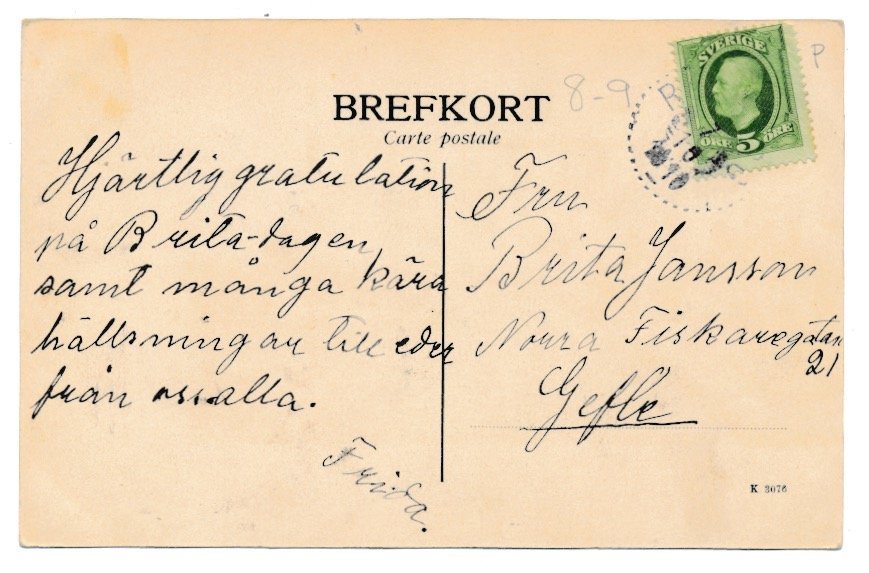 BREFKORT
Carte postale
Hjärtlig gratulation
på Brita-dagen,
samt många kära
hällsningar till eder
från oss alla.
Frida.
SVERIGE
ÖRE 5 ÖRE
8-9
P
Fru
Brita Jansson
Norra Fiskaregatan
21
Gefle
K 3076